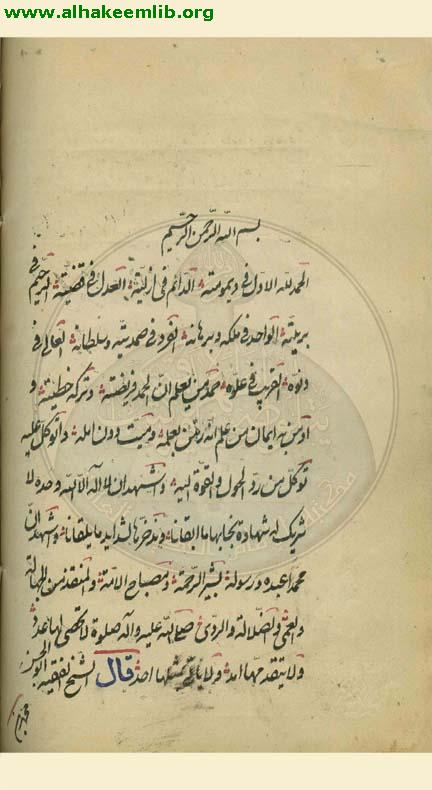 www.alhakeemlib.org
بسم الله الرحمن الرحيم
الحمد لله الاول في ديمومته الدائم في ازليته العدل في قضيته الرحيم في
بريته الواحد في ملكه وبرهانه الفرد في صمديته وسلطانه العالي في
دنوه القريب في علوه حمد من يعلم ان الحمد فريضته وتركه خطيئته و
أومن به ايمان من علم انه رهن بعمله وميت دون امله وأتوكل عليه
توكل من رد الحول والقوة اليه واشهد ان لا اله الا الله وحده لا
شريك له شهادة نحيا بها ما ابقانا وندخرها لشدايد ما يلقانا واشهد ان
محمدا عبده ورسوله بشير الرحمة ومصباح الامة والمنقذ من الجهالة
والعمى والضلالة والردى صلى الله عليه وآله صلوة لا تحصى لها عدد
ولا يتقدمها امد ولا ياتي بمثلها احد قال الشيخ الفقيه ابو